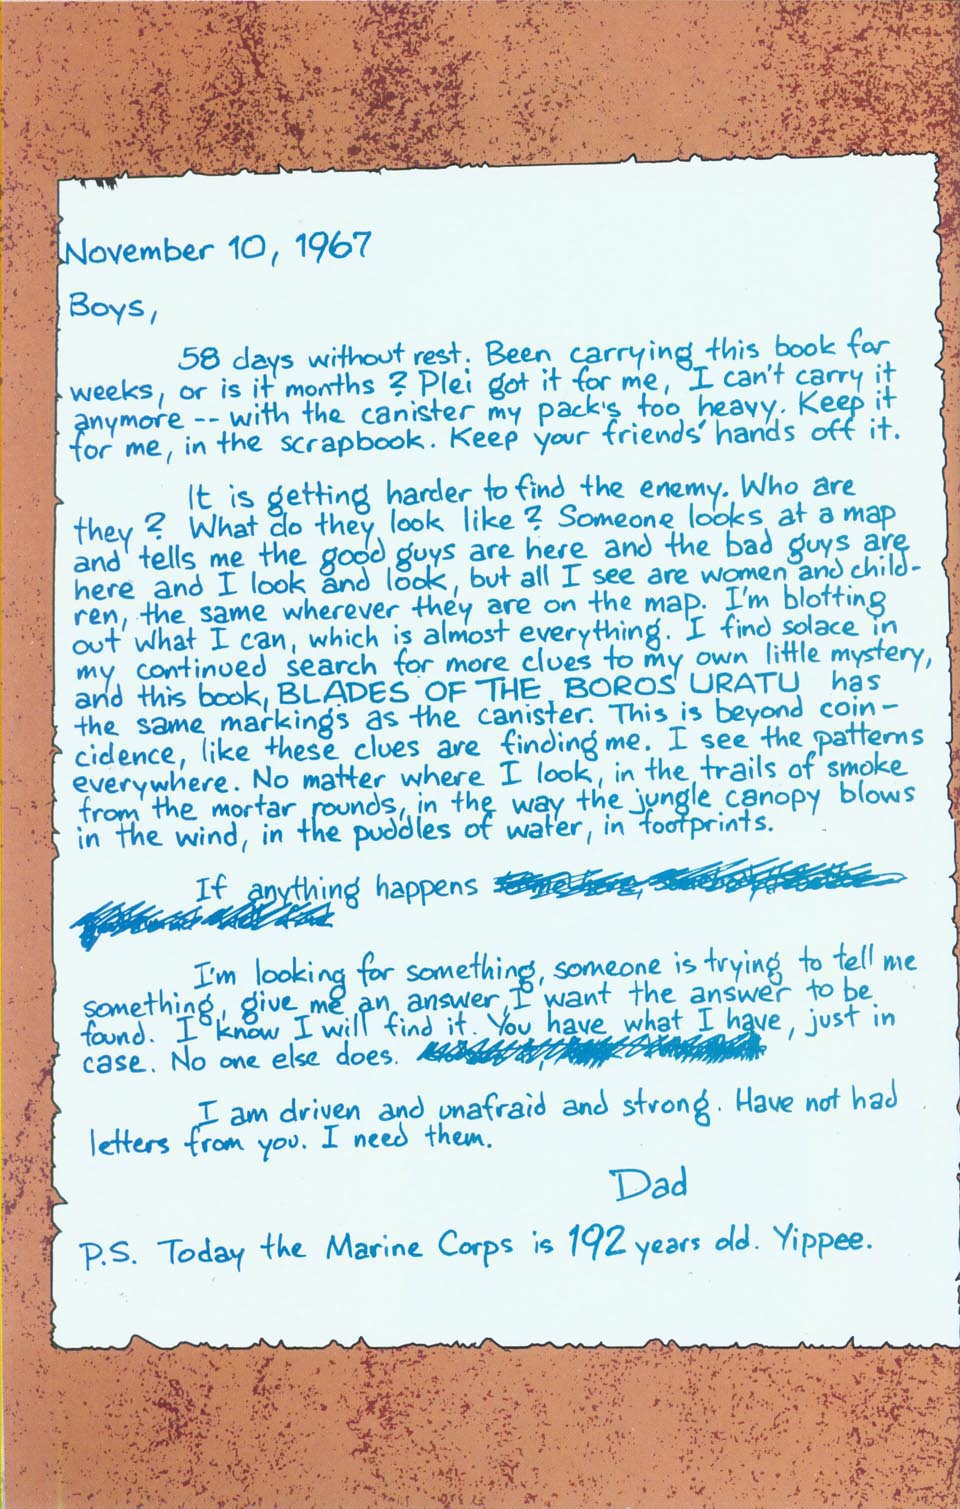 November 10, 1967
Boys,
58 days without rest. Been carrying this book for
weeks, or is it months? Plei got it for me, I can't carry it
anymore -- with the canister my pack's too heavy. Keep it
for me, in the scrapbook. Keep your friends' hands off it.
It is getting harder to find the enemy. Who are
they? What do they look like? Someone looks at a map
and tells me the good guys are here and the bad guys are
here and I look and look, but all I see are women and child-
ren, the same wherever they are on the map. I'm blotting
out what I can, which is almost everything. I find solace in
my continued search for more clues to my own little mystery,
and this book, BLADES OF THE BOROS URATU has
the same markings as the canister. This is beyond coin-
cidence, like these clues are finding me. I see the patterns
everywhere. No matter where I look, in the trails of smoke
from the mortar rounds, in the way the jungle canopy blows
in the wind, in the puddles of water, in footprints.
If anything happens
I'm looking for something, someone is trying to tell me
something, give me an answer, I want the answer to be
found. I know I will find it. You have what I have, just in
case. No one else does.
I am driven and unafraid and strong. Have not had
letters from you. I need them.
Dad
P.S. Today the Marine Corps is 192 years old. Yippee.